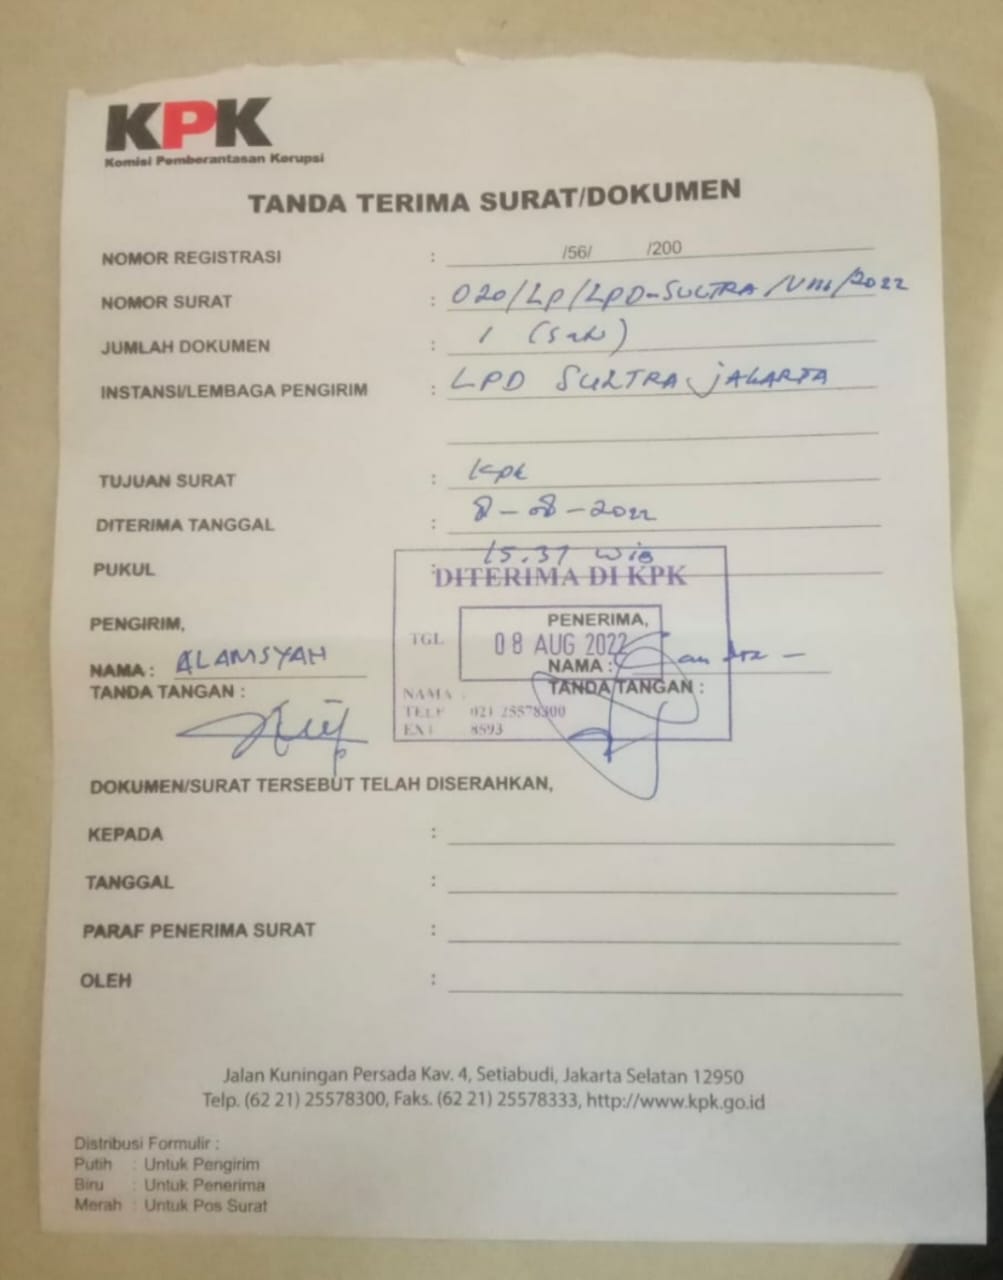 KPK
Komisi Pemberantasan Korupsi
TANDA TERIMA SURAT/DOKUMEN
NOMOR REGISTRASI : /56/ /200
NOMOR SURAT : 020/LP/LPD-SULTRA/VIII/2022
JUMLAH DOKUMEN : 1 (satu)
INSTANSI/LEMBAGA PENGIRIM : LPD SULTRA JAKARTA
TUJUAN SURAT : KPK
DITERIMA TANGGAL : 8-08-2022
PUKUL : 15.37 WIB
DITERIMA DI KPK
PENGIRIM, PENERIMA,
TGL 08 AUG 2022
NAMA : ALAMSYAH NAMA :
TANDA TANGAN : TANDA TANGAN :
NAMA :
TELP 021 25578300
EXT 8593
DOKUMEN/SURAT TERSEBUT TELAH DISERAHKAN,
KEPADA :
TANGGAL :
PARAF PENERIMA SURAT :
OLEH :
Jalan Kuningan Persada Kav. 4, Setiabudi, Jakarta Selatan 12950
Telp. (62 21) 25578300, Faks. (62 21) 25578333, http://www.kpk.go.id
Distribusi Formulir :
Putih : Untuk Pengirim
Biru : Untuk Penerima
Merah : Untuk Pos Surat